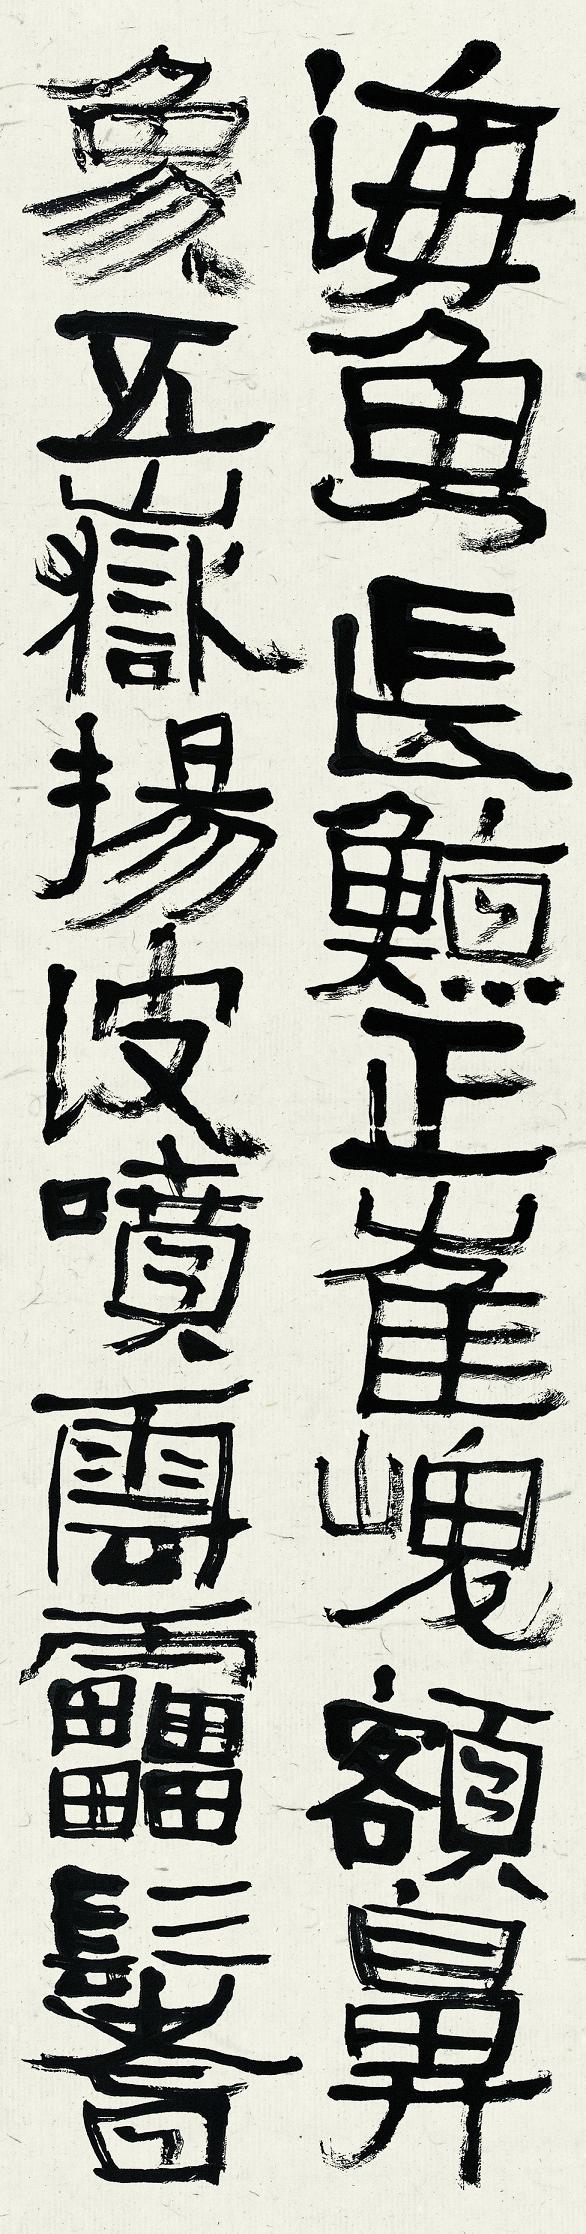 海魚長鯨正崔嵬額鼻
象五嶽揚波噴雲靁鬐